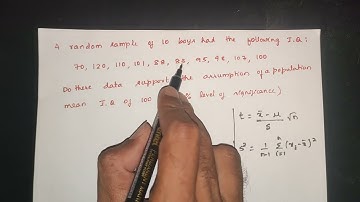 A random sample of 10 boys had the following I.Q:
70, 120, 110, 101, 88, 83, 95, 98, 107, 100
Do these data support the assumption of a population
mean I.Q of 100 % level of significance)
t = x̄ − μ / s √n
s² = 1/n−1 Σⁿᵢ₌₁ (xᵢ − x̄)²